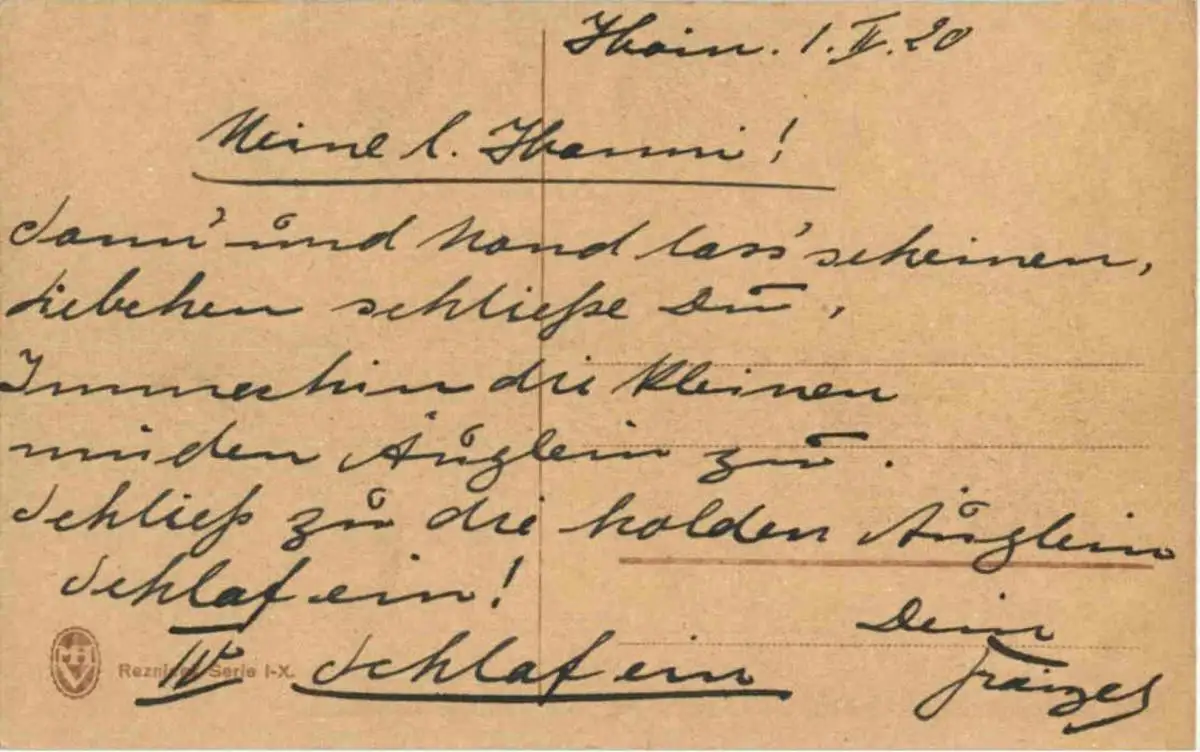 Thain. 1. II. 20
Meine l. Hanni!
Sonn' und Mond lass' scheinen,
Liebchen schließe Du,
Immerhin die kleinen
müden Äuglein zu.
Schließ zu die holden Äuglein
Schlaf ein!
Dein
IV Schlaf ein
Reznicek Serie I-X.